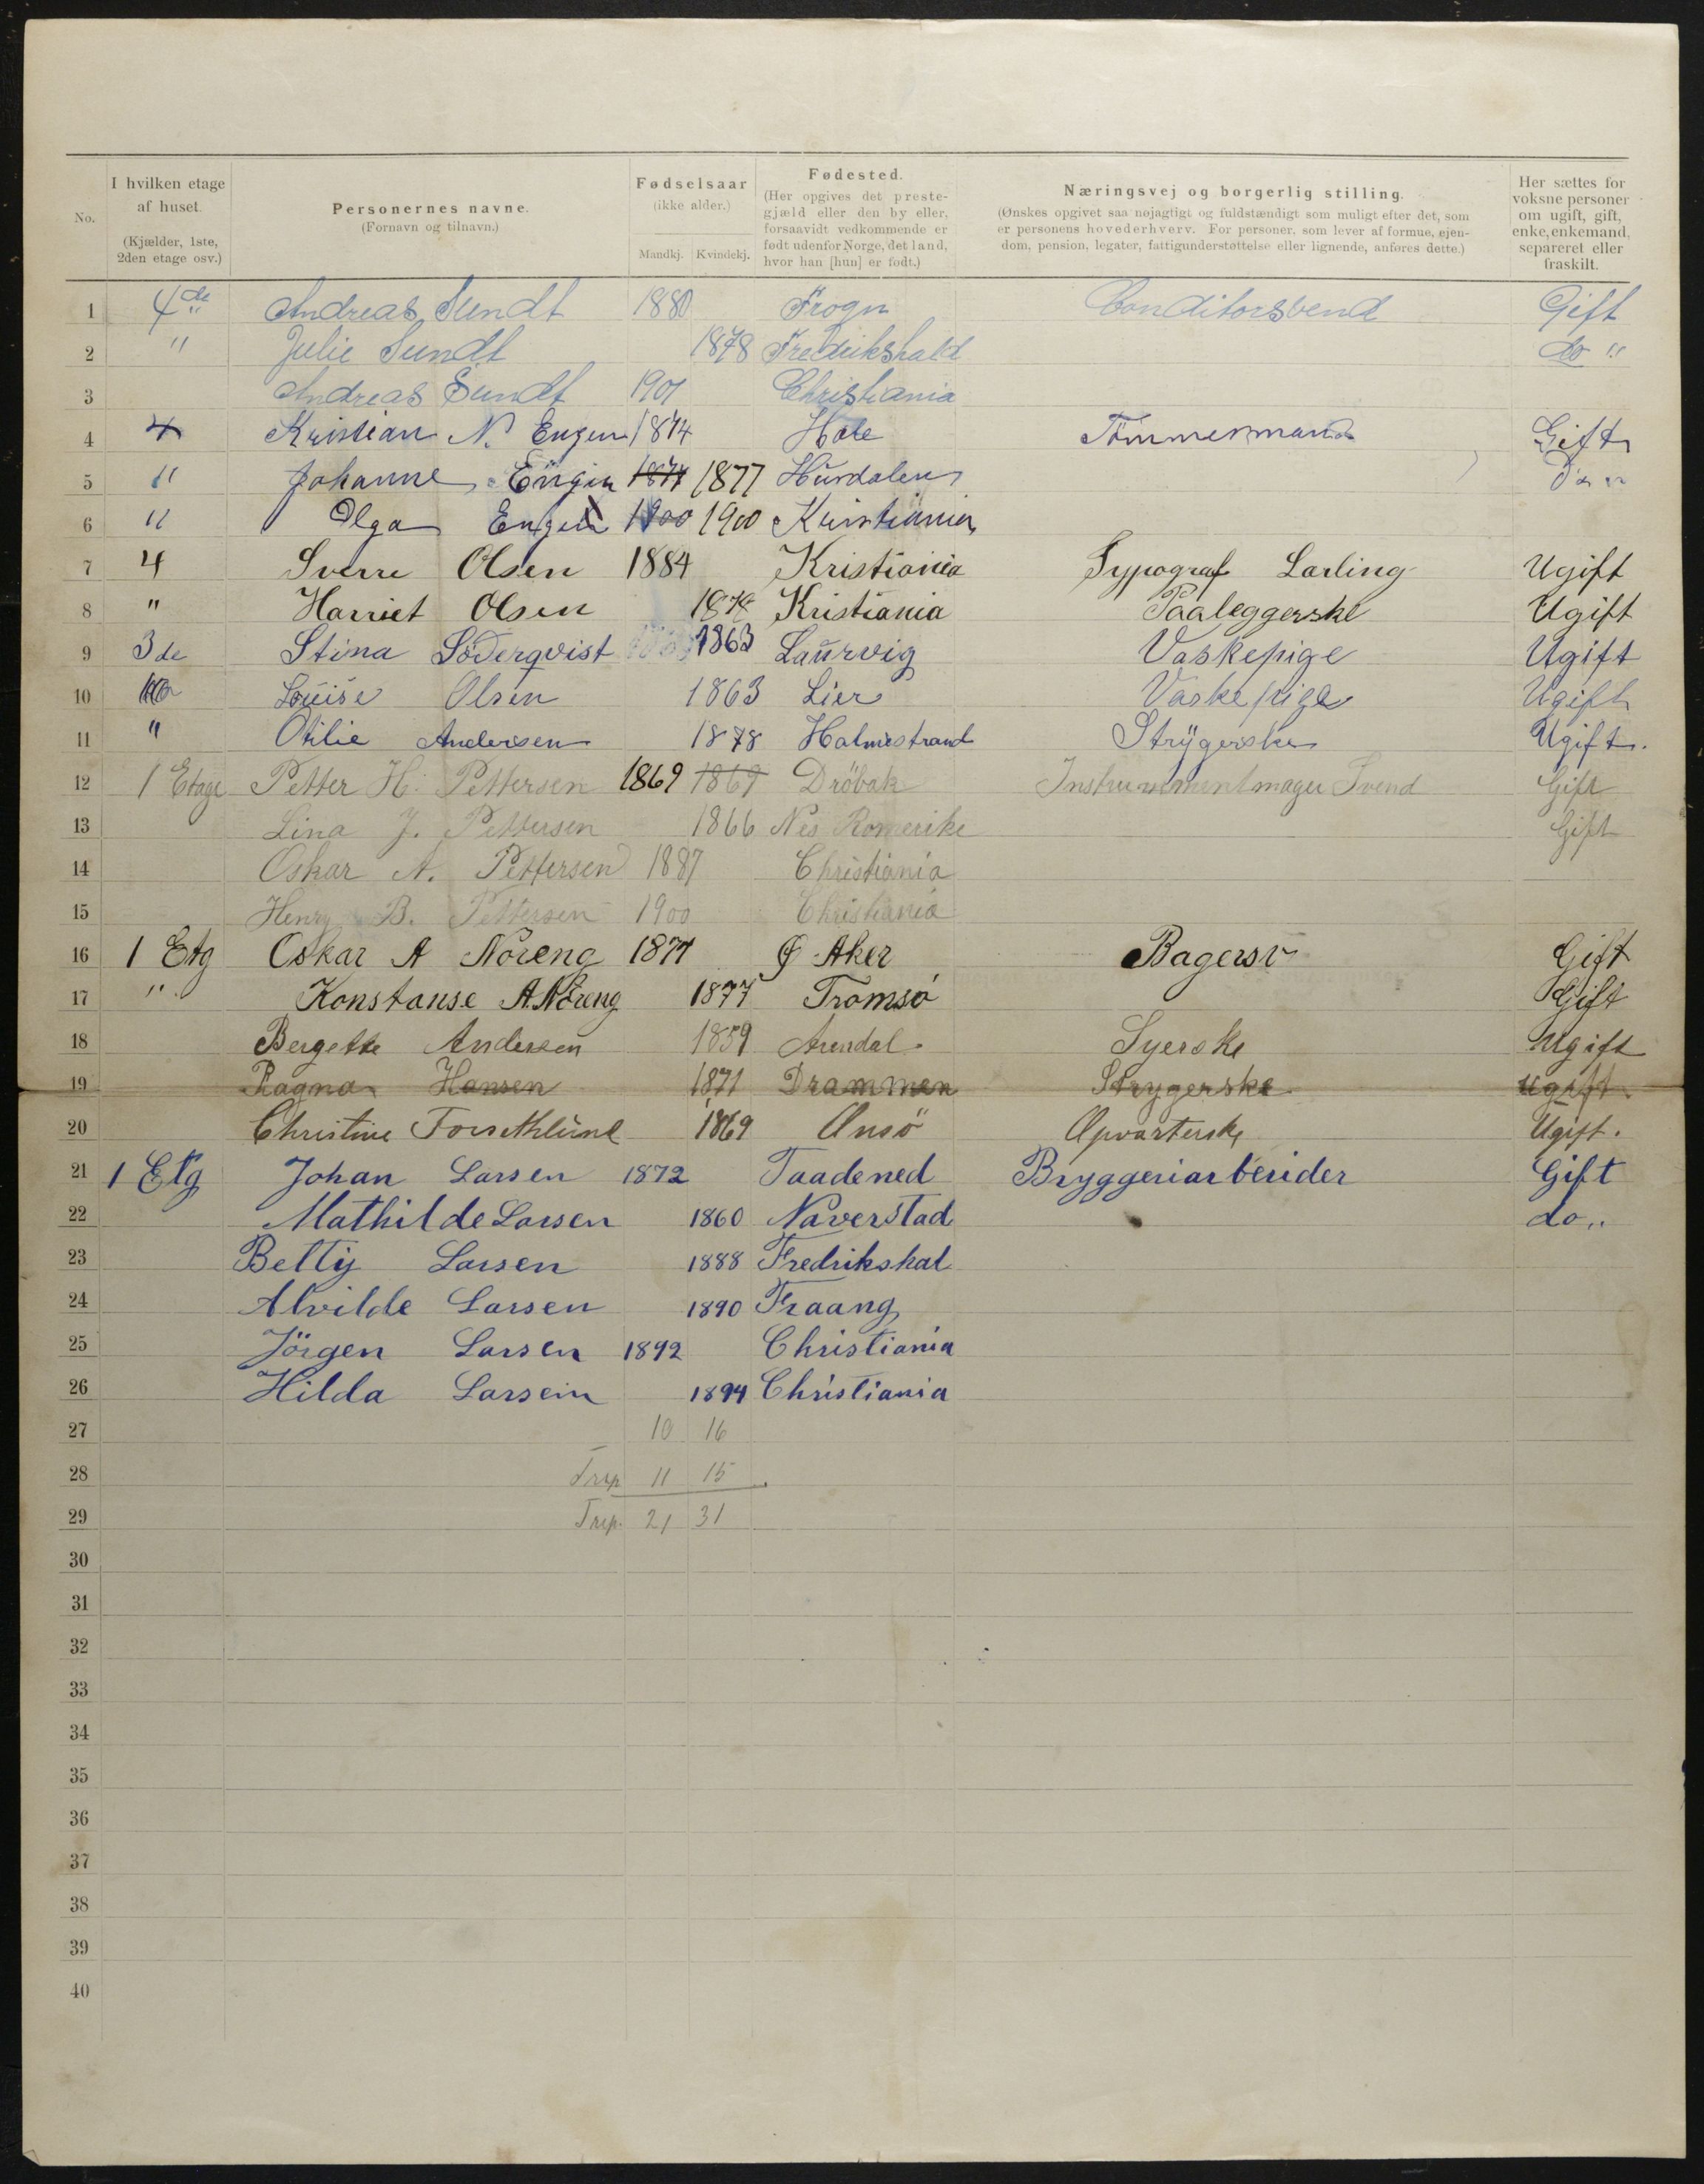 No.
I hvilken etage af huset. (Kjælder, 1ste, 2den etage osv.)
Personernes navne. (Fornavn og tilnavn.)
Fødselsaar (ikke alder.) Mandkj. Kvindekj.
Fødested. (Her opgives det prestegjæld eller den by eller, forsaavidt vedkommende er født udenfor Norge, det land, hvor han [hun] er født.)
Næringsvej og borgerlig stilling. (Ønskes opgivet saa nøjagtigt og fuldstændigt som muligt efter det, som er personens hovederhverv. For personer, som lever af formue, ejendom, pension, legater, fattigunderstøttelse eller lignende, anføres dette.)
Her sættes for voksne personer om ugift, gift, enke, enkemand, separeret eller fraskilt.
1 4de Andreas Sundt 1880 Frogn Conditorsvend Gift
2 " Julie Sundt 1878 Fredrikshald do "
3 Andreas Sundt 1901 Christiania
4 4 Kristian N. Engen 1874 Hole Tömmermand Gift
5 " Johanne Engen 1874 1877 Hurdalen Do "
6 " Olga Engen 1900 1900 Kristiania
7 4 Sverre Olsen 1884 Kristiania Typograf Larling Ugift
8 " Harriet Olsen Kristiania Paaleggerske Ugift
9 3de Stina Söderqvist 1863 Laurvig Vaskepige Ugift
10 Louise Olsen 1863 Lier Vaskepige Ugift
11 " Otilie Andersen 1878 Holmestrand Strygerske Ugift.
12 1 Etage Petter H. Pettersen 1869 1869 Dröbak Instrumentmager Svend Gift
13 Lina J. Pettersen 1866 Nes Romerike Gift
14 Oskar A. Pettersen 1887 Christiania
15 Henry B. Pettersen 1900 Christiania
16 1 Etg Oskar A Noreng 1874 Ø Aker Bagersv Gift
17 " Konstanse A. Noreng 1877 Tromsö Gift
18 Bergette Andersen 1859 Arendal. Syerske Ugift
19 Ragna Hansen 1871 Drammen Strygerske ugift
20 Christine 1869 Onsö Opvarterske Ugift.
21 1 Etg Johan Larsen 1872 Taadened Bryggeriarbeider Gift
22 Mathilde Larsen 1860 Naverstad do "
23 Betty Larsen 1888 Fredrikshal
24 Alvilde Larsen 1890 Fraang
25 Jörgen Larsen 1892 Christiania
26 Hilda Larsen 1894 Christiania
27 10 16
28 Trsp 11 15
29 Trsp. 21 31
30
31
32
33
34
35
36
37
38
39
40